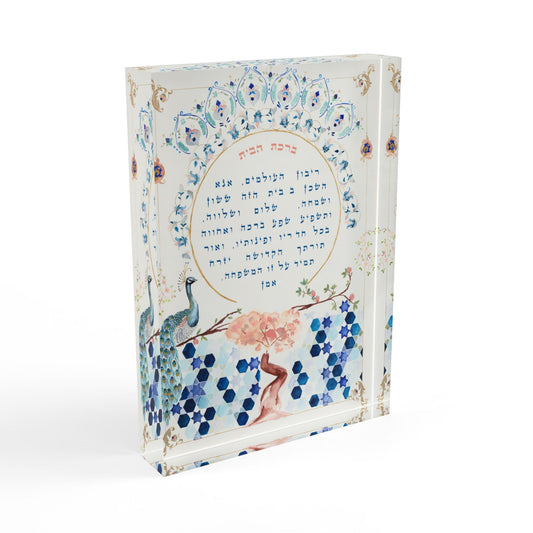 ברכת הבית
ריבון העולמים, אנא
השכן ב בית הזה ששון
ושמחה, שלום ושלווה,
ותשפיע שפע ברכה ואחווה
בכל חדריו ופינותיו, ואור
תורתך הקדושה יזרח
תמיד על זו המשפחה
אמן